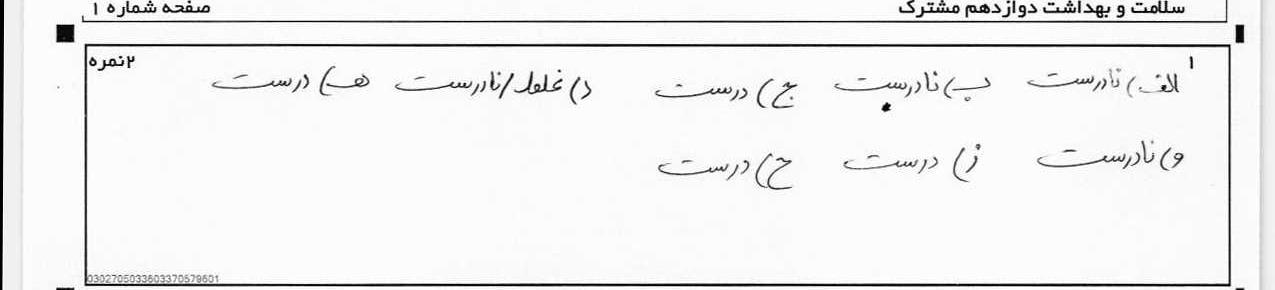 سلامت و بهداشت دوازدهم مشترک صفحه شماره ۱
۱ ۲نمره
الف) نادرست ب) نادرست ج) درست د) غلط/نادرست هـ) درست
و) نادرست ز) درست ح) درست
0302705033603370579601